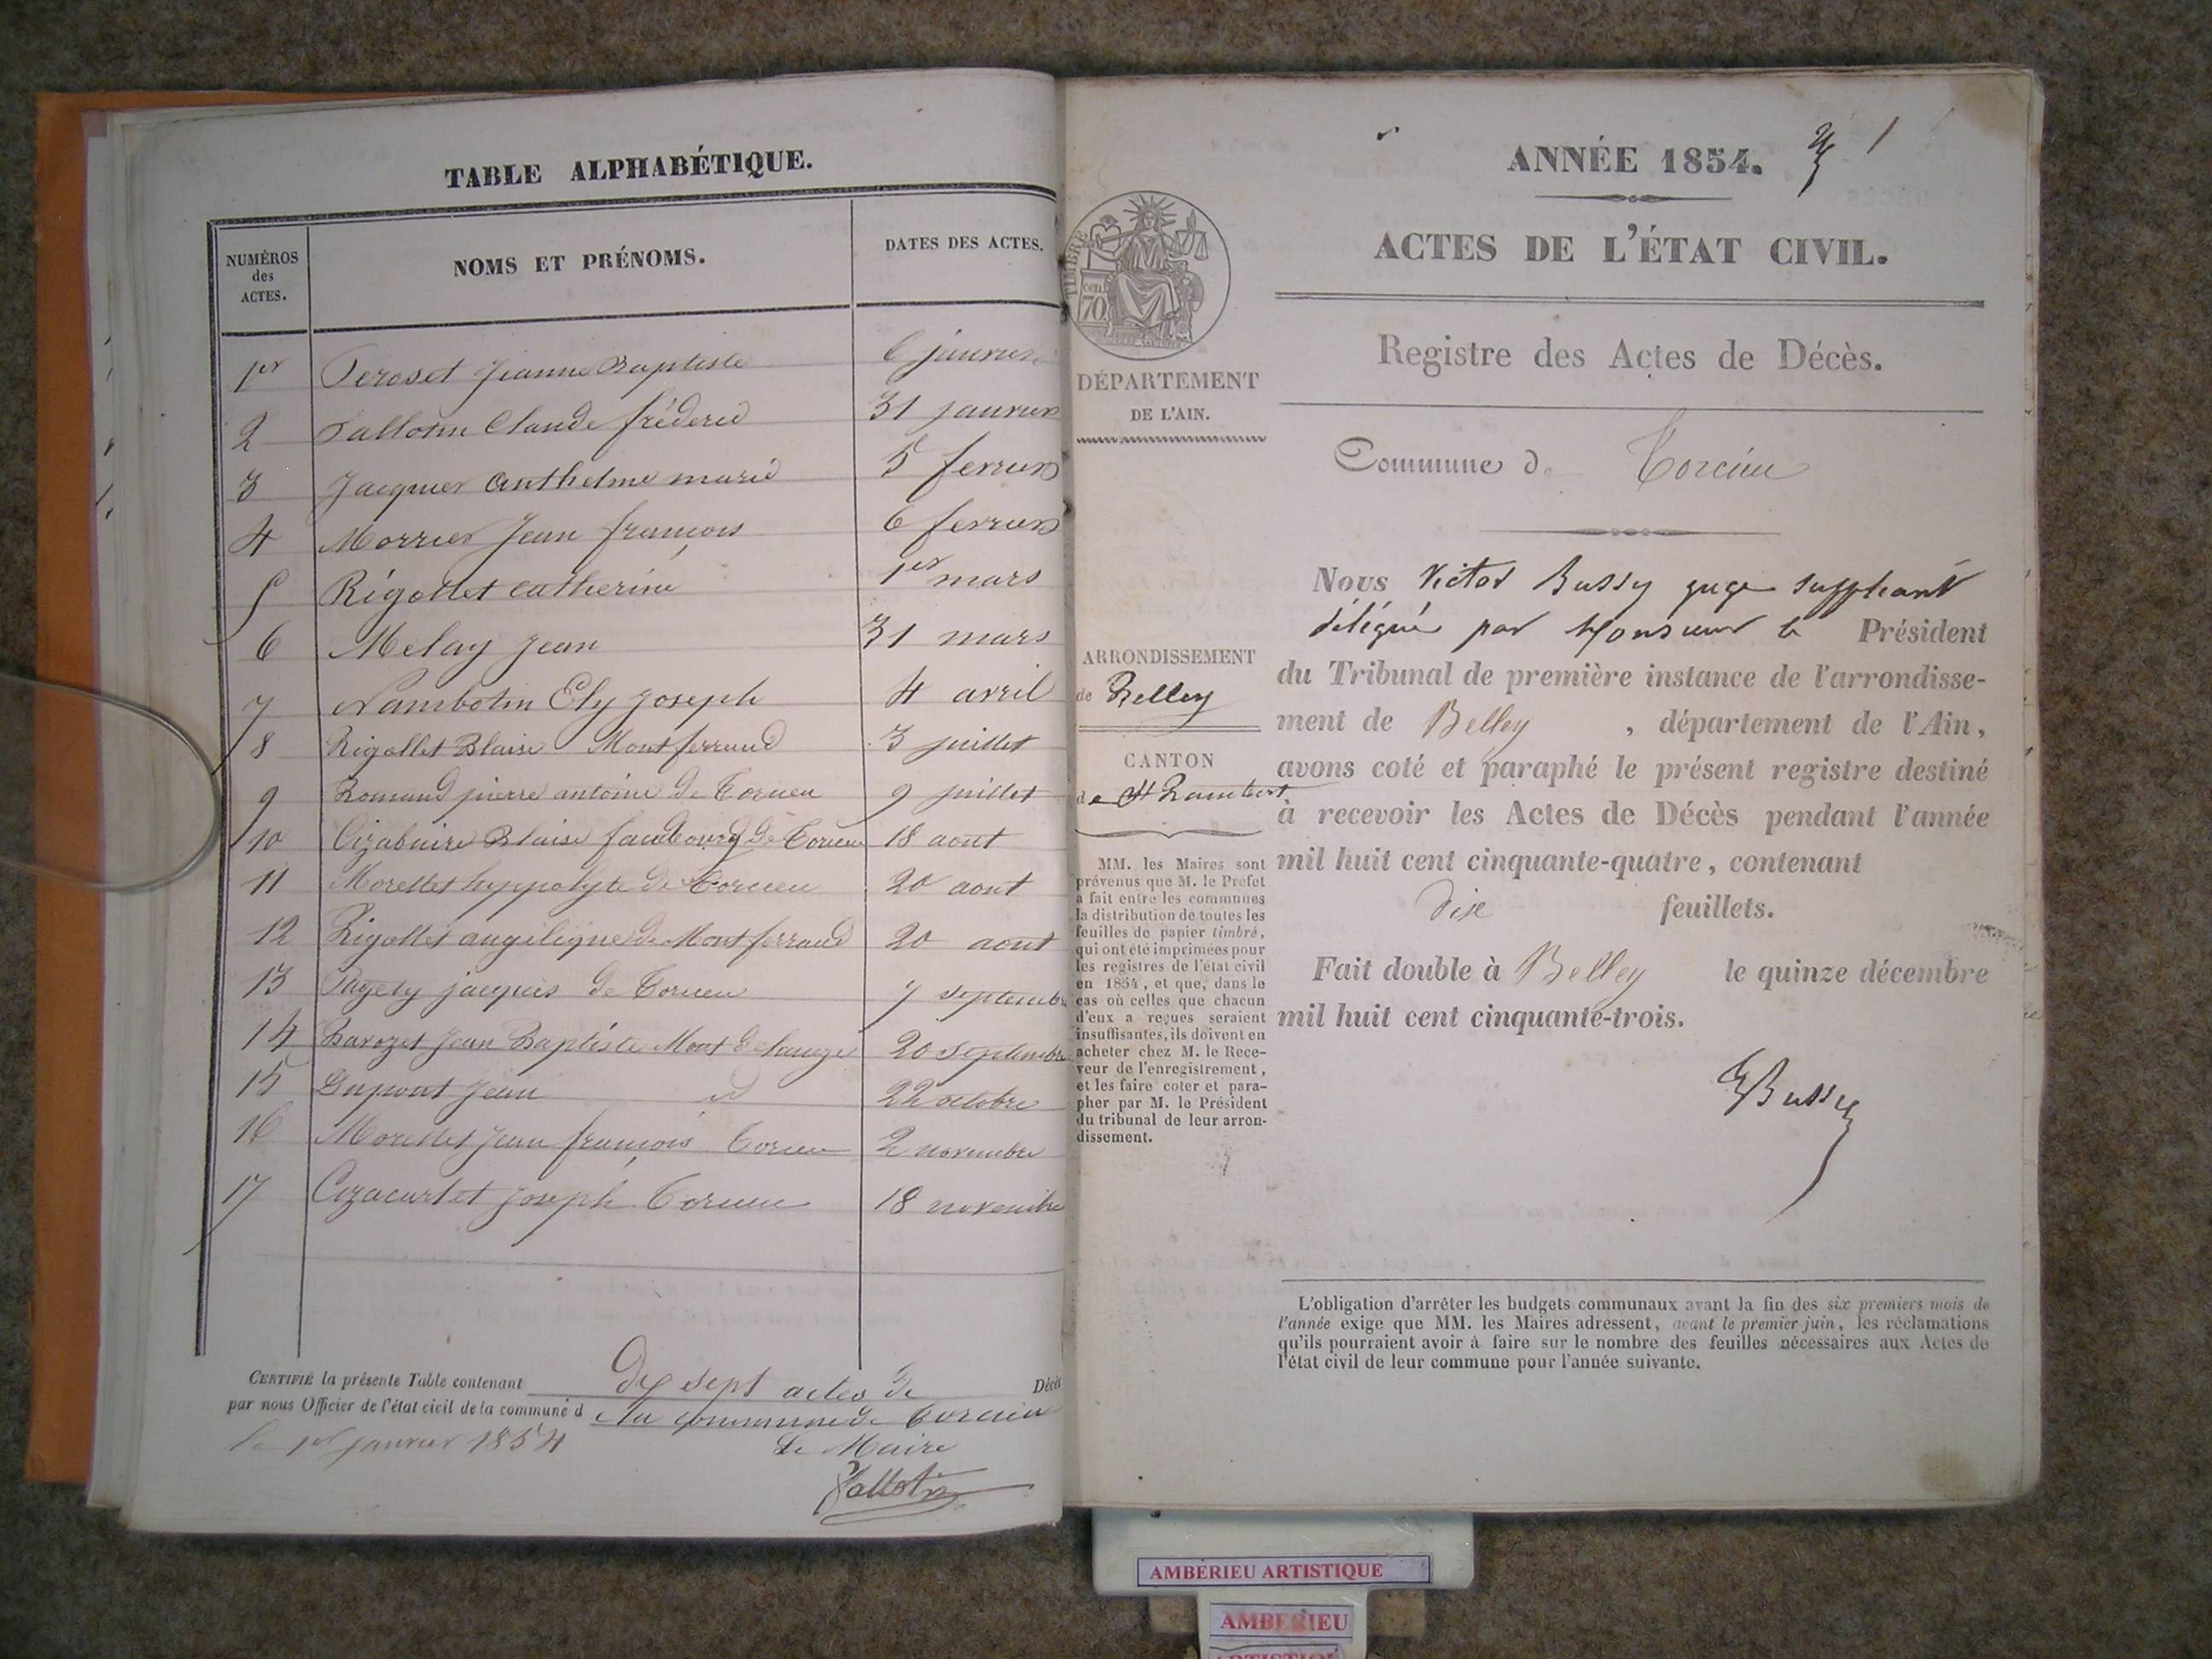 TABLE ALPHABÉTIQUE.
NUMÉROS des ACTES. NOMS ET PRÉNOMS. DATES DES ACTES.
1er Peroset Jeanne Baptiste 6 janvier
2 Tallotin Claude fréderic 31 janvier
3 Jacquier Anthelme marie 5 fevrier
4 Morrier Jean françois 6 fevrier
5 Rigottet catherine 1er mars
6 Melay Jean 31 mars
7 Nambotin Ely Joseph 4 avril
8 Rigollet Blaise Montferrand 3 juillet
9 Romand pierre antoine de Torcieu 9 juillet
10 Blaise faubourg de Torcieu 18 aout
11 Morellet hyppolyte de Torcieu 20 aout
12 Rigottet angélique de Montferrand 20 aout
13 jacques de Torcieu 7 septembre
14 Jean Baptiste Mont de lange 20 septembre
15 Dupont Jean d 22 octobre
16 Morellet Jean françois Torcieu 2 novembre
17 Joseph Torcieu 18 novembre
CERTIFIÉ la présente Table contenant dix sept actes de Décès
par nous Officier de l'état civil de la commune d la commune de Torcieu
le 1er janvier 1854 Le Maire
Tallotin
ANNÉE 1854. 1
ACTES DE L'ÉTAT CIVIL.
Registre des Actes de Décès.
TIMBRE
cen.
70
DÉPARTEMENT
DE L'AIN.
Commune de Torcieu
ARRONDISSEMENT
de Belley
CANTON
de St Rambert
MM. les Maires sont
prévenus que M. le Préfet
a fait entre les communes
la distribution de toutes les
feuilles de papier timbré,
qui ont été imprimées pour
les registres de l'état civil
en 1854, et que, dans le
cas où celles que chacun
d'eux a reçues seraient
insuffisantes, ils doivent en
acheter chez M. le Rece-
veur de l'enregistrement,
et les faire coter et para-
pher par M. le Président
du tribunal de leur arron-
dissement.
Nous Victor Bussy juge suppléant
délégué par Monsieur le Président
du Tribunal de première instance de l'arrondisse-
ment de Belley, département de l'Ain,
avons coté et paraphé le présent registre destiné
à recevoir les Actes de Décès pendant l'année
mil huit cent cinquante-quatre, contenant
dix feuillets.
Fait double à Belley le quinze décembre
mil huit cent cinquante-trois.
VBussy
L'obligation d'arrêter les budgets communaux avant la fin des six premiers mois de
l'année exige que MM. les Maires adressent, avant le premier juin, les réclamations
qu'ils pourraient avoir à faire sur le nombre des feuilles nécessaires aux Actes de
l'état civil de leur commune pour l'année suivante.
AMBÉRIEU ARTISTIQUE
AMBERIEU
ARTISTIQUE